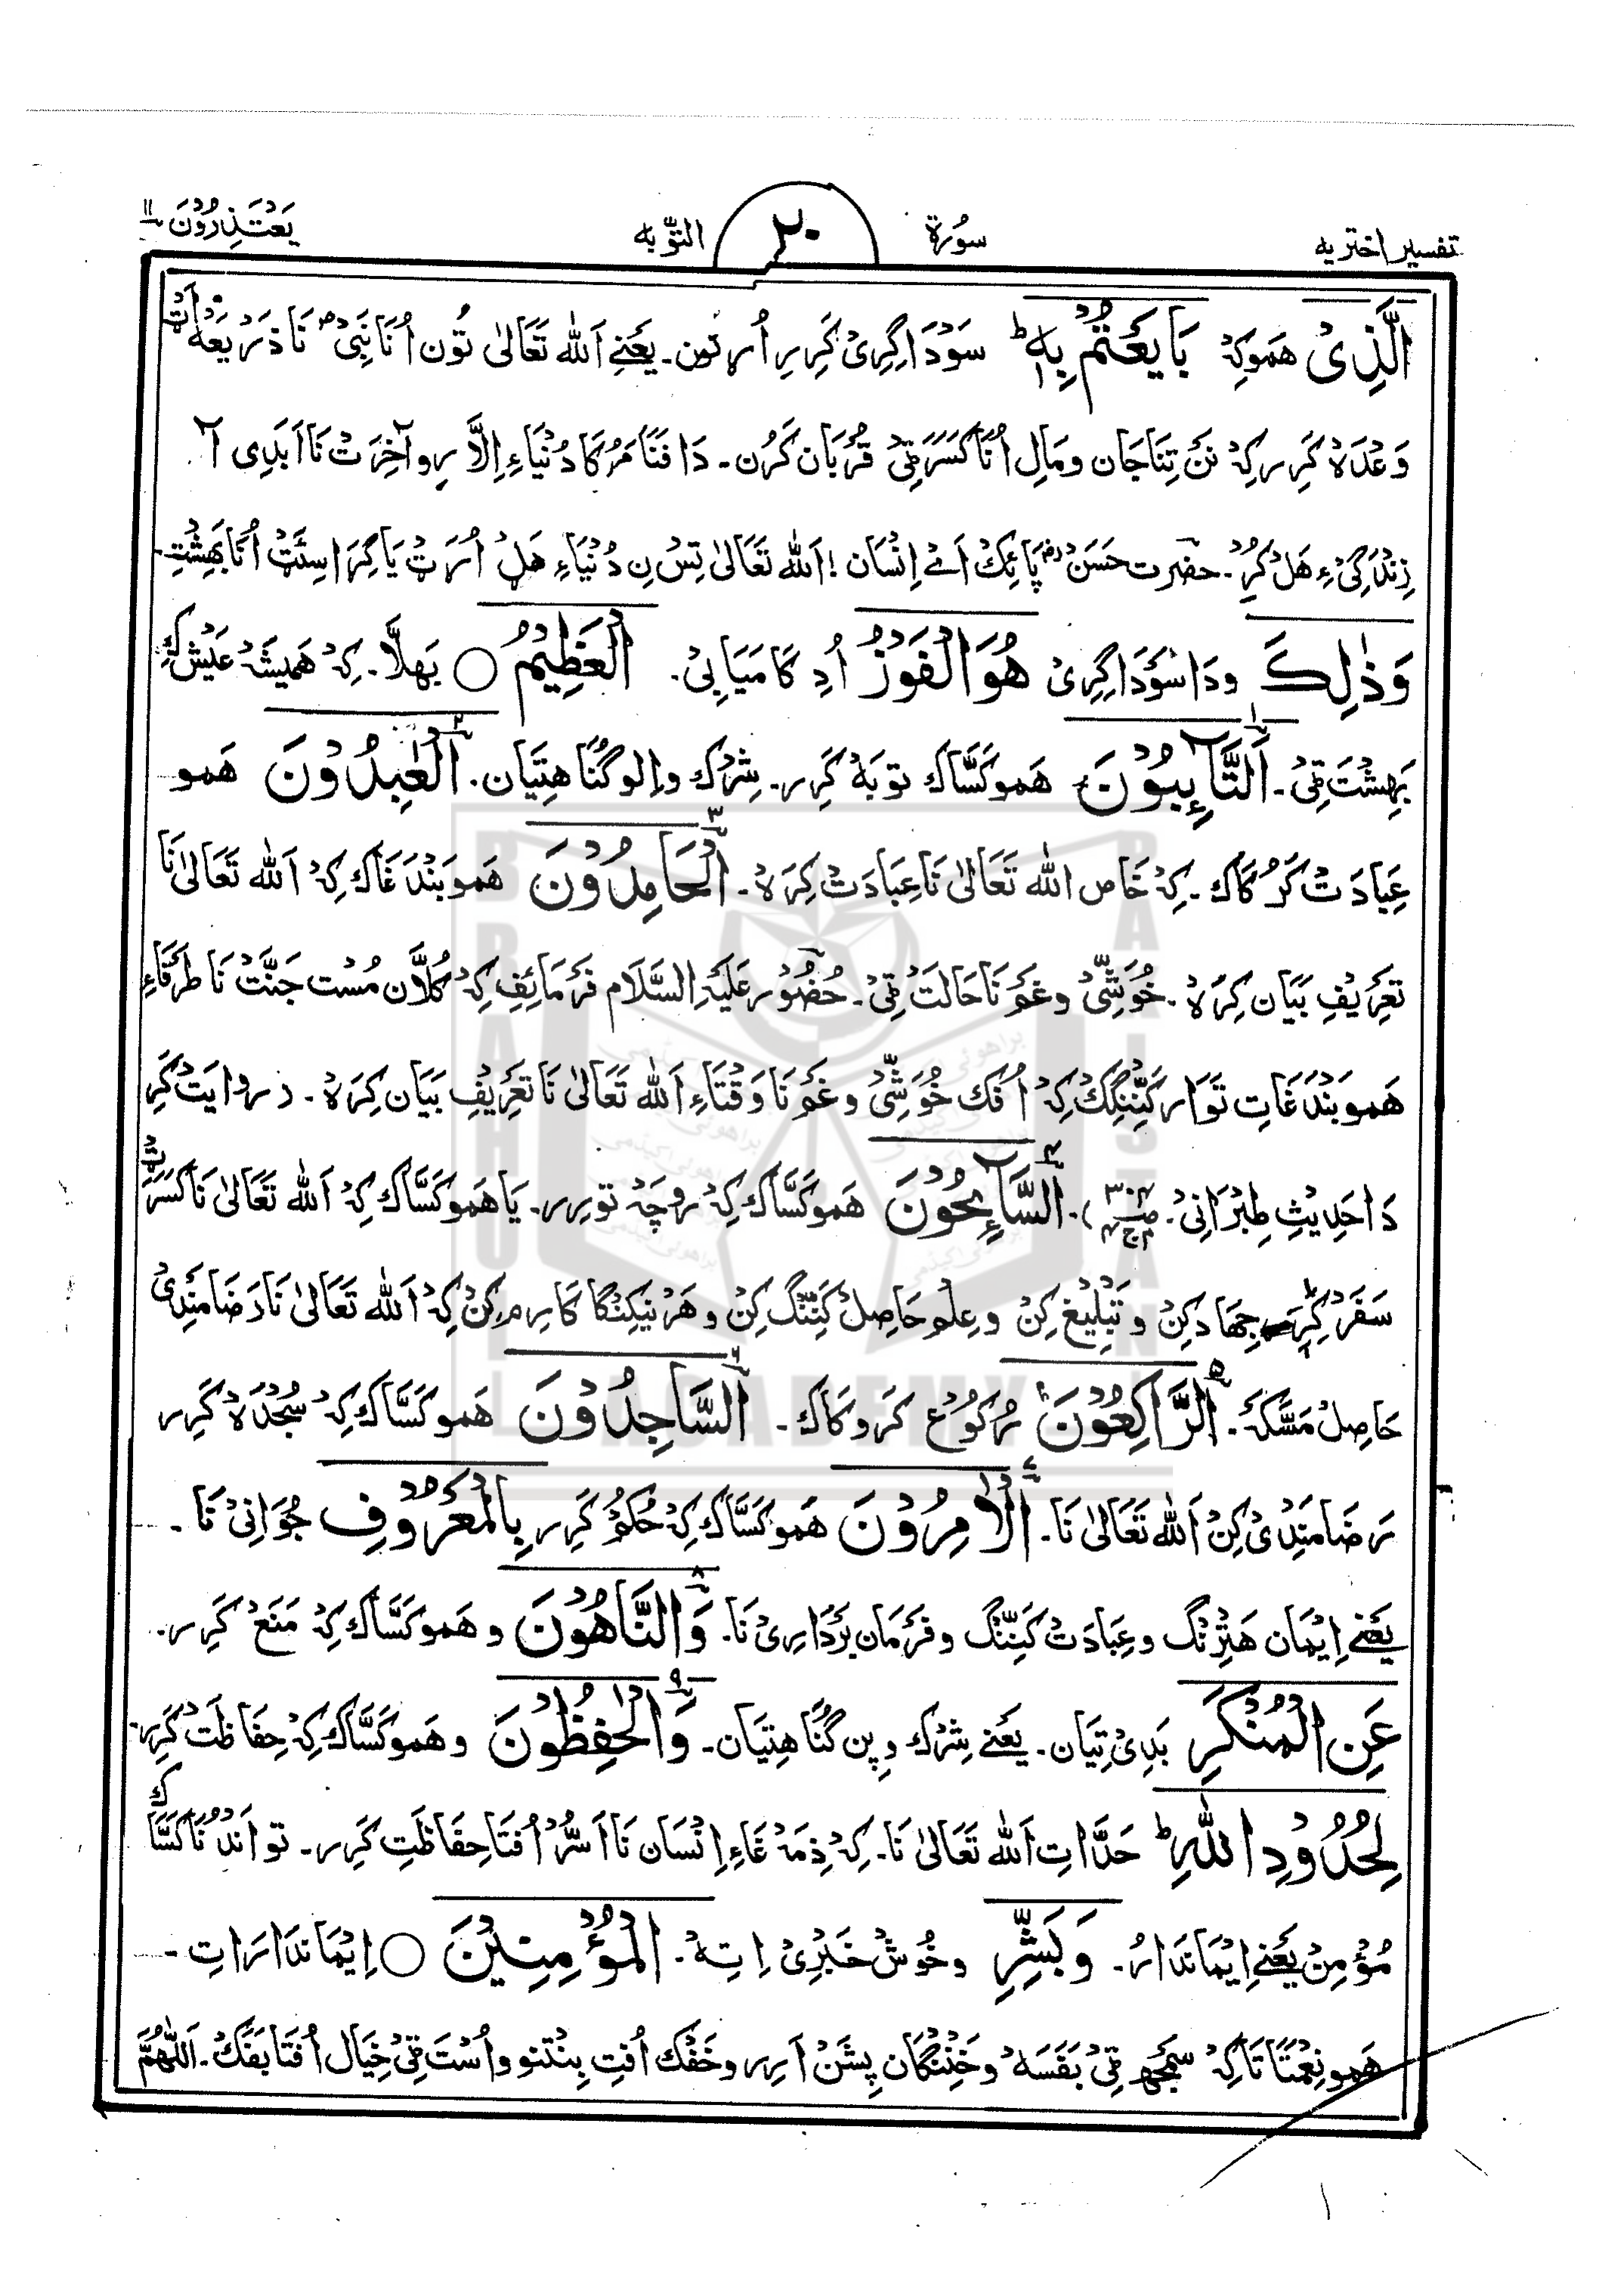 تفسیر اختریه سُورَة ۲۰ التَّوبه یَعْتَذِرُوْنَ ۱۱
الَّذِیْ هَموکِہْ بَایَعْتُمْ بِهٖ ؕ سَوْدَاگِرِیْ کَرِیر اُر تون۔ یَعْنِے اَللہ تَعَالیٰ تُون اُنَا نَبِیْ ؐ نَا ذَرِیْعَہ اَٹ
وَعْدَہْ کَرِیر کِہْ نَنْ تِنَا جَان ومَالِ اُنَا کَسَرَ ٹِیْ قُرْبَان کَرُن۔ دَا فَنَا مَرُکَا دُنْیَاءِ اِلَّا یرِو آخِرَتْ نَا اَبَدِی آ
زِنْدَگِیْ ءِ هَلْ کُرْ۔ حضرت حَسَنْ رض پَائِکْ اَے اِنْسَان ! اَللہ تَعَالیٰ تِسُ نِ دُنْیَاءِ هَلْ اُرَٹْ یَا گِرَا سِئَٹْ اُنَا بَهِشْتِ
وَذٰلِكَ ودَا سَوْدَاگِرِیْ هُوَ الْفَوْزُ اُدِ کَامِیَابِیْ۔ الْعَظِیْمُ ○ بَهلَّا۔ کِہْ هَمِیشَہْ عَیْش کِ
بَهِشْتَ ٹِیْ۔ اَلتَّآئِبُوْنَ هَمو کَسَّاک توبَہْ کَرِیر۔ شِرْک واِلو گُنَاهتِیَان۔ الْعٰبِدُوْنَ هَمو
عِبَادَتْ کَرُکَاک۔ کِہْ خَاص اللہ تَعَالیٰ نَا عِبَادَتْ کِرَہْ۔ الْحَامِدُوْنَ هَمو بَنْدَغَاک کِہْ اَللہ تَعَالیٰ نَا
تَعْرِیْفِ بَیَان کِرَہْ۔ خُوَشِّیْ وغَمْ نَا حَالَتْ ٹِیْ۔ حُضُوْر عَلَیْہِ السَّلَام فَرْمَائِفِ کِہْ کُلَّان مُسْت جَنَّتْ نَا طَرَفَاءِ
هَمو بَنْدَغَاتِ تَوَار کَنِّنگِکْ کِہْ اُفک خُوَشِّیْ وغَمْ نَا وَقْتَاءِ اَللہ تَعَالیٰ نَا تَعْرِیْفِ بَیَان کِرَہْ۔ (روَایَتْ کَرِ
دَا حَدِیْثِ طِبْرَانِیْ۔ صـ۳۰۴ ج۴)۔ السَّآئِحُوْنَ هَمو کَسَّاک کِہْ روچَہْ تورِیر۔ یَا هَمو کَسَّاک کِہْ اَللہ تَعَالیٰ نَا کَسَرَ ٹِیْ
سَفَرْ کِرَ جِهَاد کِنْ وتَبْلِیْغ کِنْ وعِلْم حَاصِلْ کَنِّنگ کِنْ وهَرْ نیکِنْگَا کَارِم کِنْ کِہْ اَللہ تَعَالیٰ نَا رَضَامَنْدِیْ
حَاصِلْ مَسَّکَہْ۔ الرَّاكِعُوْنَ رُکُوْع کَروکَاک۔ السَّاجِدُوْنَ هَمو کَسَّاک کِہْ سُجْدَہْ کَرِیر
رَضَامَنْدِیْ کِنْ اَللہ تَعَالیٰ نَا۔ الْاٰمِرُوْنَ هَمو کَسَّاک کِہْ حُکمْ کَرِیر بِالْمَعْرُوْفِ جُوَانِیْ نَا۔
یَعْنِے اِیْمَان هَتِرْنگ وعِبَادَتْ کَنِّنگ وفَرْمَان بَرْدَارِیْ نَا۔ وَالنَّاهُوْنَ وهَمو کَسَّاک کِہْ مَنَعْ کَرِیر۔
عَنِ الْمُنْكَرِ بَدِیْ تِیَان۔ یَعْنِے شِرْک وپِن گُنَاهتِیَان۔ وَالْحٰفِظُوْنَ وهَمو کَسَّاک کِہْ حِفَاظَتْ کَرِیر
لِحُدُوْدِ اللّٰهِ ؕ حَدَّاتِ اَللہ تَعَالیٰ نَا۔ کِہْ ذِمَہْ غَاءِ اِنْسَان نَا اَسُّرْ اُفتَا حِفَاظَتِ کَرِیر۔ تو اَنْدُنَا کَسَّاک
مُؤْمِنْ یَعْنِے اِیْمَاندَارُ۔ وَبَشِّرِ وخُوشْ خَبَرِیْ اِتِہْ۔ الْمُؤْمِنِیْنَ ○ اِیْمَاندَارَاتِ۔
هَمو نِعْمَتَاتَا کِہْ سَمْجھ ٹِیْ بَفَسَہْ وخَنِنْگان پِشَنْ اَرِیر وخَفْک اُفتِ بِنْتَنو واُسْتَ ٹِیْ خِیَال اُفتَا بَفَکْ۔ اَللّٰهُمَّ